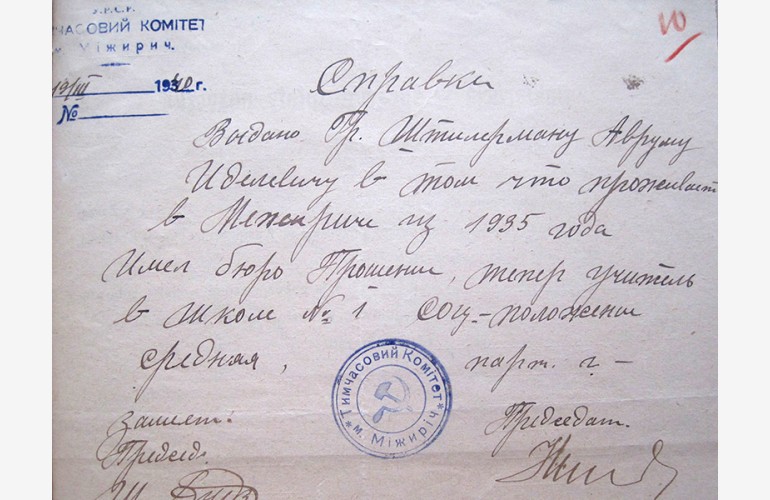 У.Р.С.Р.
ТИМЧАСОВИЙ КОМІТЕТ
м. Міжирич.
10
19/III 1940 г.
№
Справка
Выдано Гр. Штилерману Авруму
Иделевичу в том что проживает
в Межириче из 1935 года
Имел бюро Прошении, тепер учитель
в школе № 1 Соц-положение
средняя, парт. г. –
Тимчасовий Комітет
м. Міжиріч
замест. Председат.
Председ.